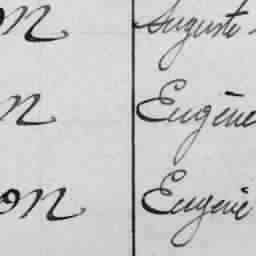 on Auguste
n Eugène
on Eugénie